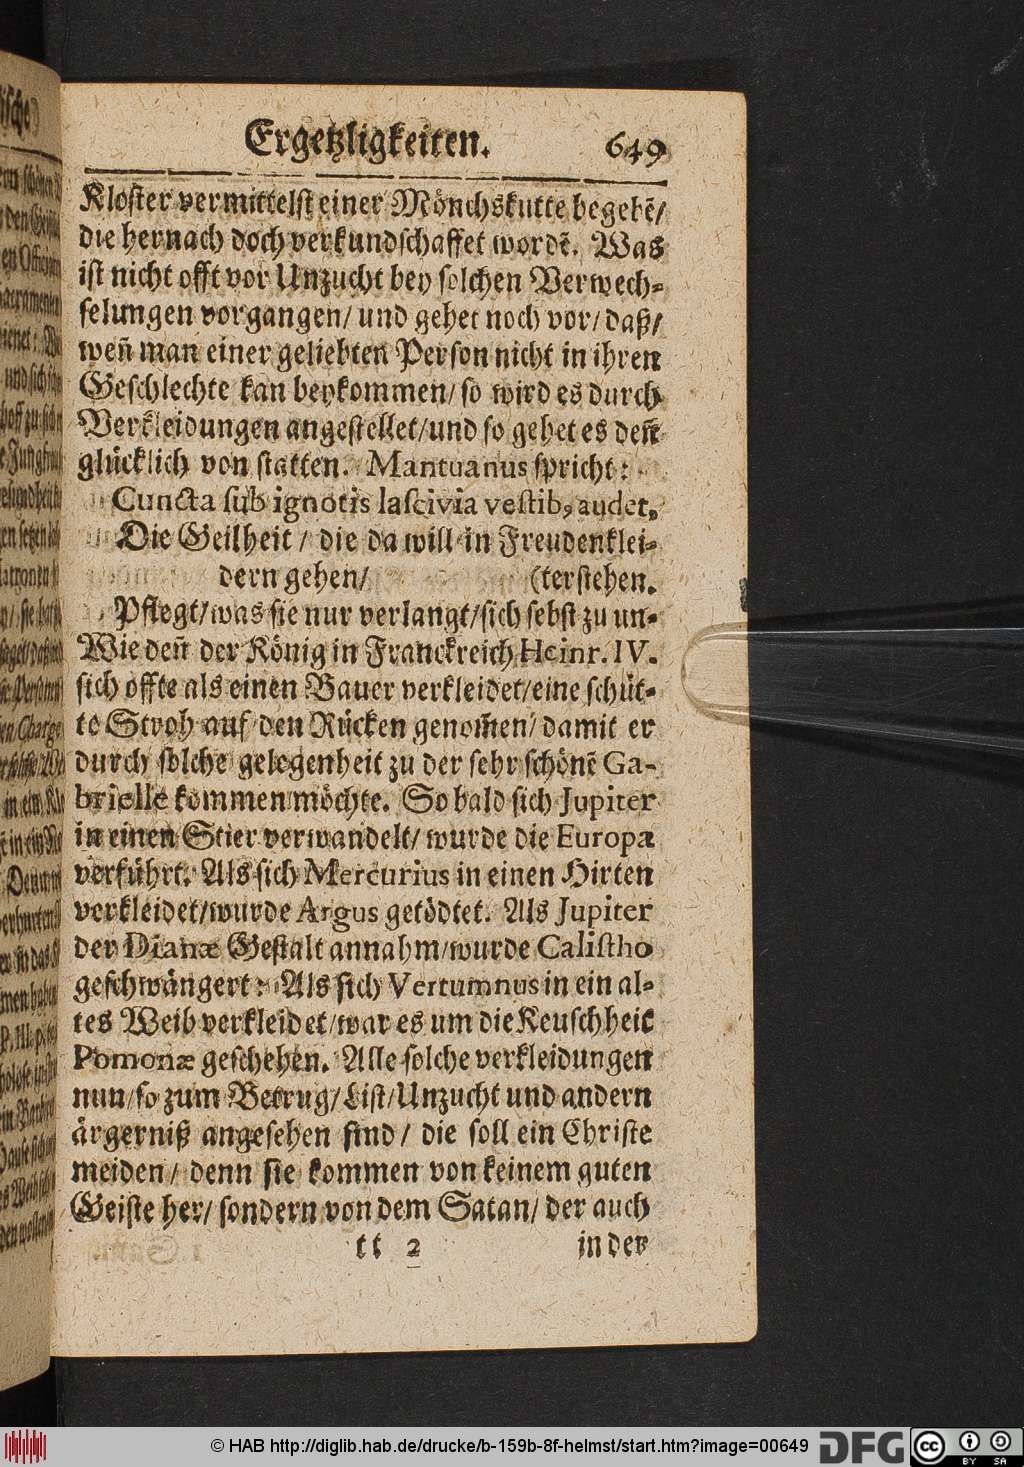 Ergetzligkeiten. 649
Kloster vermittelst einer Mönchskutte begebē/
die hernach doch verkundschaffet wordē. Was
ist nicht offt vor Unzucht bey solchen Verwech-
selungen vorgangen/ und gehet noch vor/ daß/
weñ man einer geliebten Person nicht in ihren
Geschlechte kan beykommen/ so wird es durch
Verkleidungen angestellet/ und so gehet es deñ
glücklich von statten. Mantuanus spricht:
Cuncta sub ignotis lascivia vestibꝯ audet.
Die Geilheit / die da will in Freudenklei-
dern gehen/ (terstehen.
Pflegt/ was sie nur verlangt/ sich sebst zu un-
Wie deñ der König in Franckreich Heinr. IV.
sich offte als einen Bauer verkleidet/ eine schüt-
te Stroh auf den Rücken genom̃en/ damit er
durch solche gelegenheit zu der sehr schönē Ga-
brielle kommen möchte. So bald sich Jupiter
in einen Stier verwandelt/ wurde die Europa
verführt. Als sich Mercurius in einen Hirten
verkleidet/ wurde Argus getödtet. Als Jupiter
der Dianæ Gestalt annahm/ wurde Calistho
geschwängert: Als sich Vertumnus in ein al-
tes Weib verkleidet/ war es um die Keuschheit
Pomonæ geschehen. Alle solche verkleidungen
nun/ so zum Betrug/ List/ Unzucht und andern
ärgerniß angesehen sind / die soll ein Christe
meiden / denn sie kommen von keinem guten
Geiste her/ sondern von dem Satan/ der auch
tt 2 in der
© HAB http://diglib.hab.de/drucke/b-159b-8f-helmst/start.htm?image=00649 DFG cc BY SA